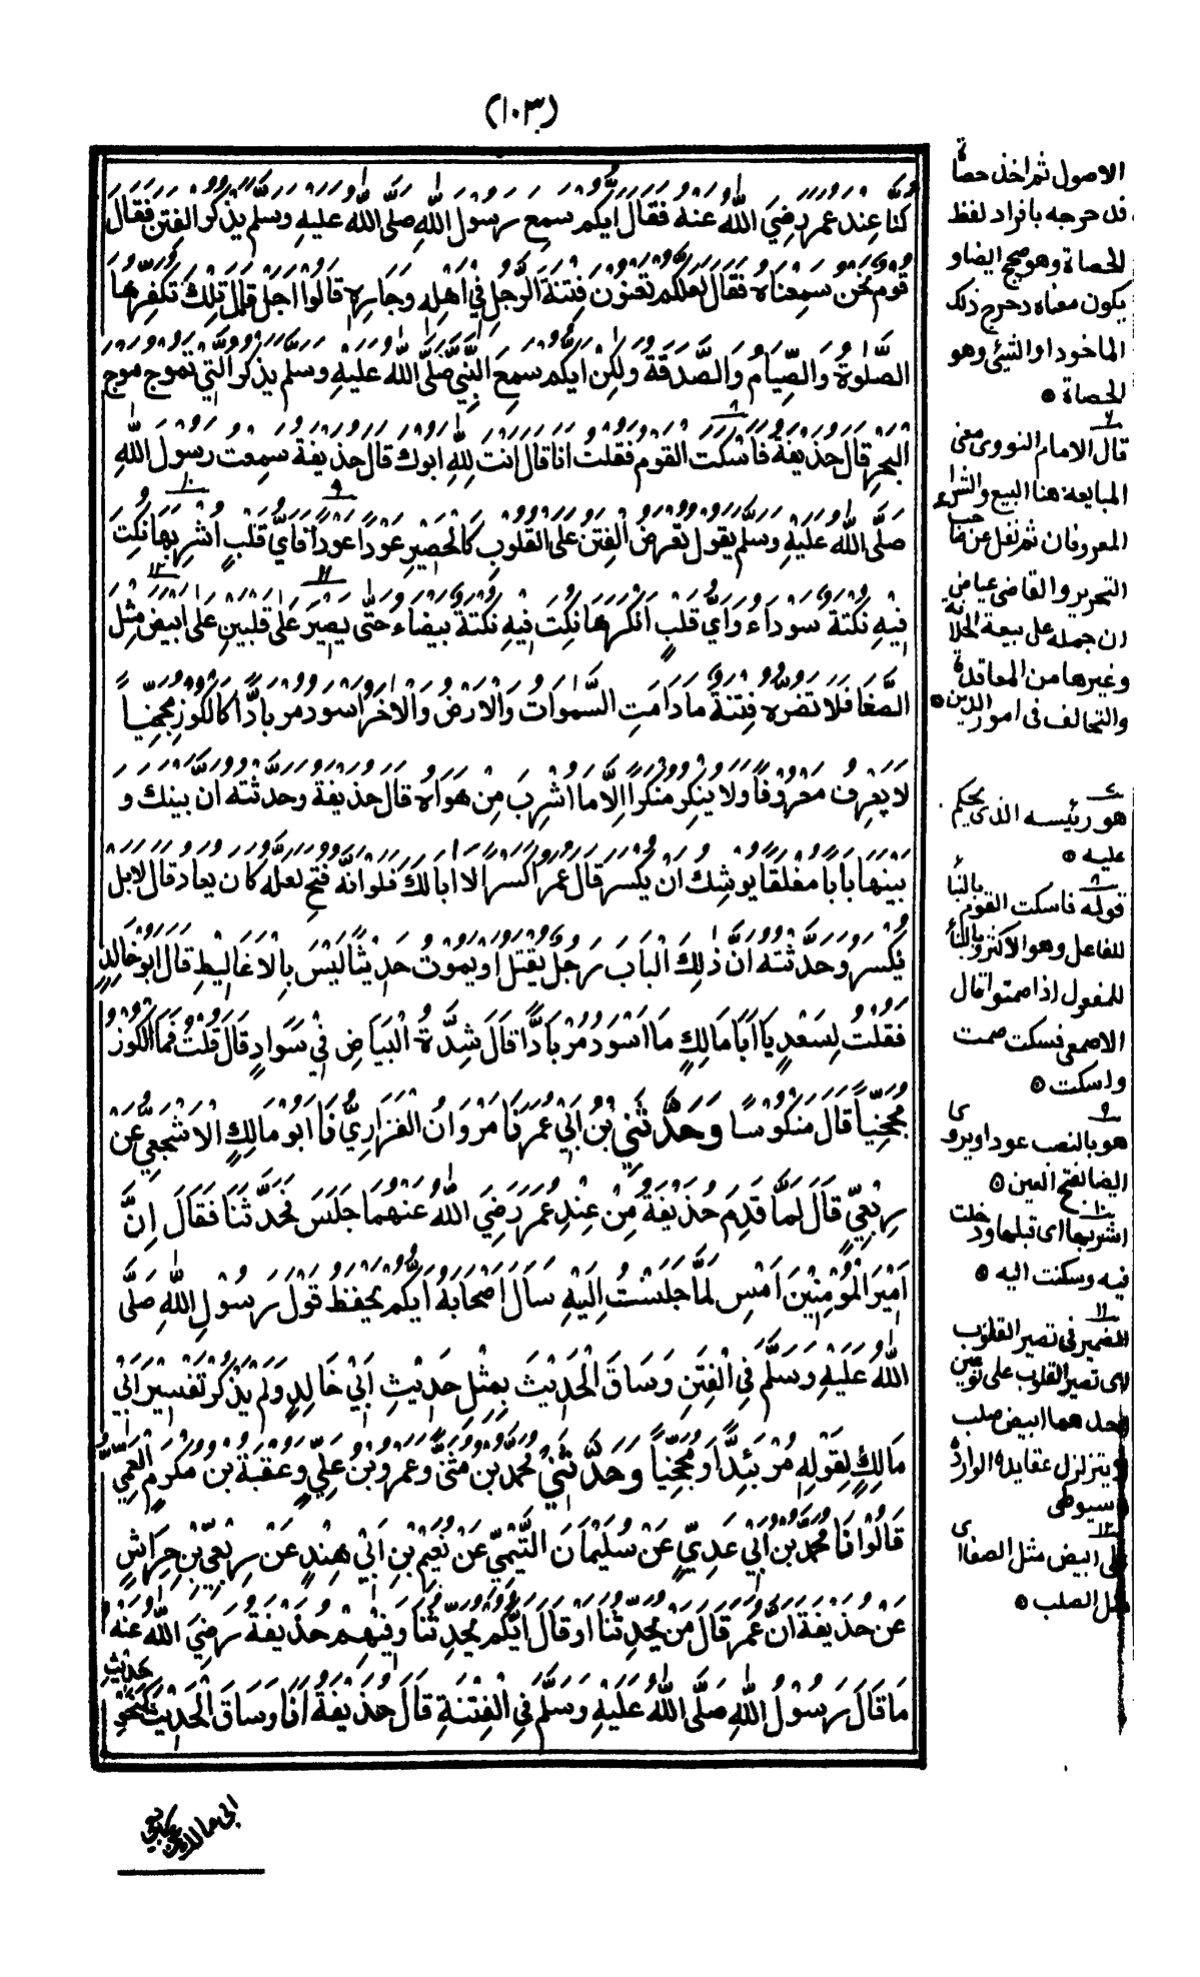 (١٠٣)
كُنَّا عِنْدَ عُمَرَ رَضِيَ اللهُ عَنْهُ فَقَالَ اَيُّكُمْ سَمِعَ رَسُوْلَ اللهِ صَلَّى اللهُ عَلَيْهِ وَسَلَّمَ يَذْكُرُ الْفِتَنَ فَقَالَ
قَوْمٌ نَحْنُ سَمِعْنَاهُ فَقَالَ لَعَلَّكُمْ تَعْنُوْنَ فِتْنَةَ الرَّجُلِ فِيْ اَهْلِهِ وَجَارِهِ قَالُوْا اَجَلْ قَالَ تِلْكَ تُكَفِّرُهَا
الصَّلٰوةُ وَالصِّيَامُ وَالصَّدَقَةُ وَلٰكِنْ اَيُّكُمْ سَمِعَ النَّبِيَّ صَلَّى اللهُ عَلَيْهِ وَسَلَّمَ يَذْكُرُ الَّتِيْ تَمُوْجُ مَوْجَ
الْبَحْرِ قَالَ حُذَيْفَةُ فَاَسْكَتَ الْقَوْمُ فَقُلْتُ اَنَا قَالَ اَنْتَ لِلّٰهِ اَبُوْكَ قَالَ حُذَيْفَةُ سَمِعْتُ رَسُوْلَ اللهِ
صَلَّى اللهُ عَلَيْهِ وَسَلَّمَ يَقُوْلُ تُعْرَضُ الْفِتَنُ عَلَى الْقُلُوْبِ كَالْحَصِيْرِ عَوْدًا عَوْدًا فَاَيُّ قَلْبٍ اُشْرِبَهَا نُكِتَ
فِيْهِ نُكْتَةٌ سَوْدَاءُ وَاَيُّ قَلْبٍ اَنْكَرَهَا نُكِتَ فِيْهِ نُكْتَةٌ بَيْضَاءُ حَتّٰى يَصِيْرَ عَلٰى قَلْبَيْنِ عَلٰى اَبْيَضَ مِثْلِ
الصَّفَا فَلَا تَضُرُّهُ فِتْنَةٌ مَا دَامَتِ السَّمٰوَاتُ وَالْاَرْضُ وَالْاٰخَرُ اَسْوَدُ مُرْبَادًّا كَالْكُوْزِ مُجَخِّيًا
لَا يَعْرِفُ مَعْرُوْفًا وَلَا يُنْكِرُ مُنْكَرًا اِلَّا مَا اُشْرِبَ مِنْ هَوَاهُ قَالَ حُذَيْفَةُ وَحَدَّثْتُهُ اَنَّ بَيْنَكَ وَ
بَيْنَهَا بَابًا مُغْلَقًا يُوْشِكُ اَنْ يُكْسَرَ قَالَ عُمَرُ اَكَسْرًا لَا اَبَا لَكَ فَلَوْ اَنَّهُ فُتِحَ لَعَلَّهُ كَانَ يُعَادُ قَالَ لَا بَلْ
يُكْسَرُ وَحَدَّثْتُهُ اَنَّ ذٰلِكَ الْبَابَ رَجُلٌ يُقْتَلُ اَوْ يَمُوْتُ حَدِيْثًا لَيْسَ بِالْاَغَالِيْطِ قَالَ اَبُوْ خَالِدٍ
فَقُلْتُ لِسَعْدٍ يَا اَبَا مَالِكٍ مَا اَسْوَدُ مُرْبَادًّا قَالَ شِدَّةُ الْبَيَاضِ فِيْ سَوَادٍ قَالَ قُلْتُ فَمَا الْكُوْزُ
مُجَخِّيًا قَالَ مَنْكُوْسًا وَحَدَّثَنِي بْنُ اَبِيْ عُمَرَ نَا مَرْوَانُ الْفَزَارِيُّ نَا اَبُوْ مَالِكٍ الْاَشْجَعِيُّ عَنْ
رِبْعِيٍّ قَالَ لَمَّا قَدِمَ حُذَيْفَةُ مِنْ عِنْدِ عُمَرَ رَضِيَ اللهُ عَنْهُمَا جَلَسَ فَحَدَّثَنَا فَقَالَ اِنَّ
اَمِيْرَ الْمُؤْمِنِيْنَ اَمْسِ لَمَّا جَلَسْتُ اِلَيْهِ سَاَلَ اَصْحَابَهُ اَيُّكُمْ يَحْفَظُ قَوْلَ رَسُوْلِ اللهِ صَلَّى
اللهُ عَلَيْهِ وَسَلَّمَ فِي الْفِتَنِ وَسَاقَ الْحَدِيْثَ بِمِثْلِ حَدِيْثِ اَبِيْ خَالِدٍ وَلَمْ يَذْكُرْ تَفْسِيْرَ اَبِيْ
مَالِكٍ لِقَوْلِهِ مُرْبَئِدًّا وَمُجَخِّيًا وَحَدَّثَنِيْ مُحَمَّدُ بْنُ مُثَنّٰى وَعَمْرُو بْنُ عَلِيٍّ وَعُقْبَةُ بْنُ مُكْرَمٍ الْعَمِّيُّ
قَالُوْا نَا مُحَمَّدُ بْنُ اَبِيْ عَدِيٍّ عَنْ سُلَيْمَانَ التَّيْمِيِّ عَنْ نُعَيْمِ بْنِ اَبِيْ هِنْدٍ عَنْ رِبْعِيِّ بْنِ حِرَاشٍ
عَنْ حُذَيْفَةَ اَنَّ عُمَرَ قَالَ مَنْ يُحَدِّثُنَا اَوْ قَالَ اَيُّكُمْ يُحَدِّثُنَا وَفِيْهِمْ حُذَيْفَةُ رَضِيَ اللهُ عَنْهُ
مَا قَالَ رَسُوْلُ اللهِ صَلَّى اللهُ عَلَيْهِ وَسَلَّمَ فِي الْفِتْنَةِ قَالَ حُذَيْفَةُ اَنَا وَسَاقَ الْحَدِيْثَ كَنَحْوِ حديث
ابى مالك عن ربعي
الاصول ثم اخذ حصاة
فدحرجه بافراد لفظ
الحصاة وهو صحيح ايضا و
يكون معناه دحرج ذلك
الماخوذ او الشئ وهو
الحصاة
قال الامام النووى معنى
المبايعة هنا البيع والشراء
المعروفان ثم نقل عن صاحب
التحرير والقاضى عياض
ان حمله على بيعة الخلافة
وغيرها من المعاقدة
والتحالف فى امور الدين
هو رئيسه الذى يحكم
عليه
٨
قوله فاسكت القوم بالبناء
للفاعل وهو الاكثر وبالبناء
للمفعول اذا صمتوا قال
الاصمعى فسكت صمت
واسكت
٩
هو بالنصب عودا ويروى
ايضا بفتح العين
١٠
اشربها اى قبلها ودخلت
فيه وسكنت اليه
١١
الضمير فى تصير القلوب
اى تصير القلوب على نوعين
احدهما ابيض صلب
يتزلزل عقايده الوارده
سيوطى
١٢
على ابيض مثل الصفا اى
الصلب